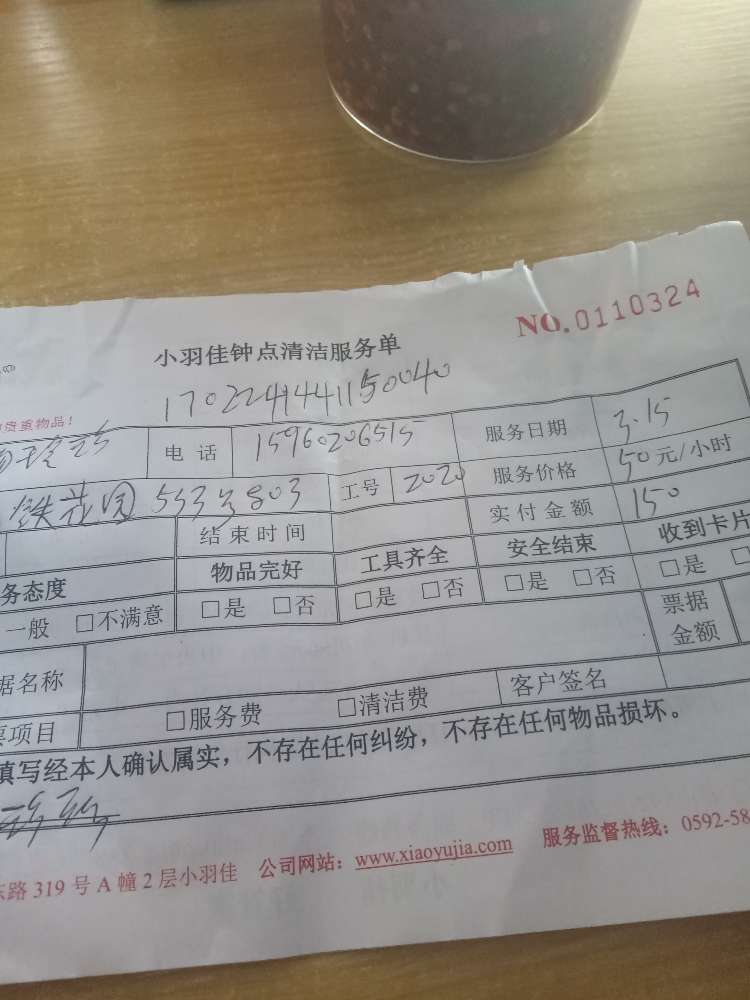 NO.0110324
小羽佳钟点清洁服务单
1702241441150040
贵重物品！
电 话 15960206515 服务日期 3.15
铁花园 803 工号 2020 服务价格 50元/小时
结束时间 实付金额 150
务态度 物品完好 工具齐全 安全结束 收到卡片
一般 □不满意 □是 □否 □是 □否 □是 □否 □是 □
据名称 票据金额
票项目 □服务费 □清洁费 客户签名
填写经本人确认属实，不存在任何纠纷，不存在任何物品损坏。
东路319号A幢2层小羽佳 公司网站：www.xiaoyujia.com 服务监督热线：0592-58